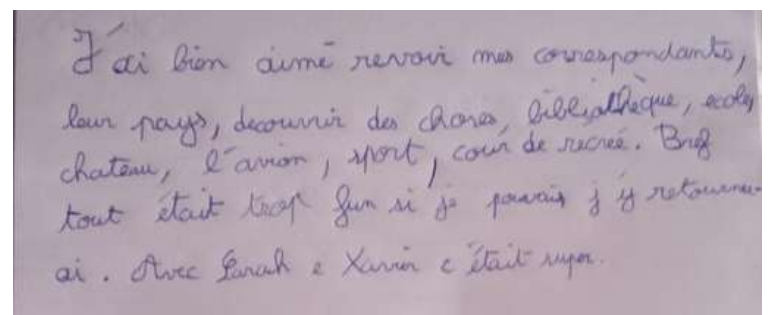 J'ai bien aimé revoir mes correspondants,
leur pays, decouvrir des choses, bibliathèque, ecole,
chateau, l'avion, sport, cour de recreé. Bref
tout était trop fun si je pouvais j'y retourner-
ai. Avec Sarah e Xavier c'était super.